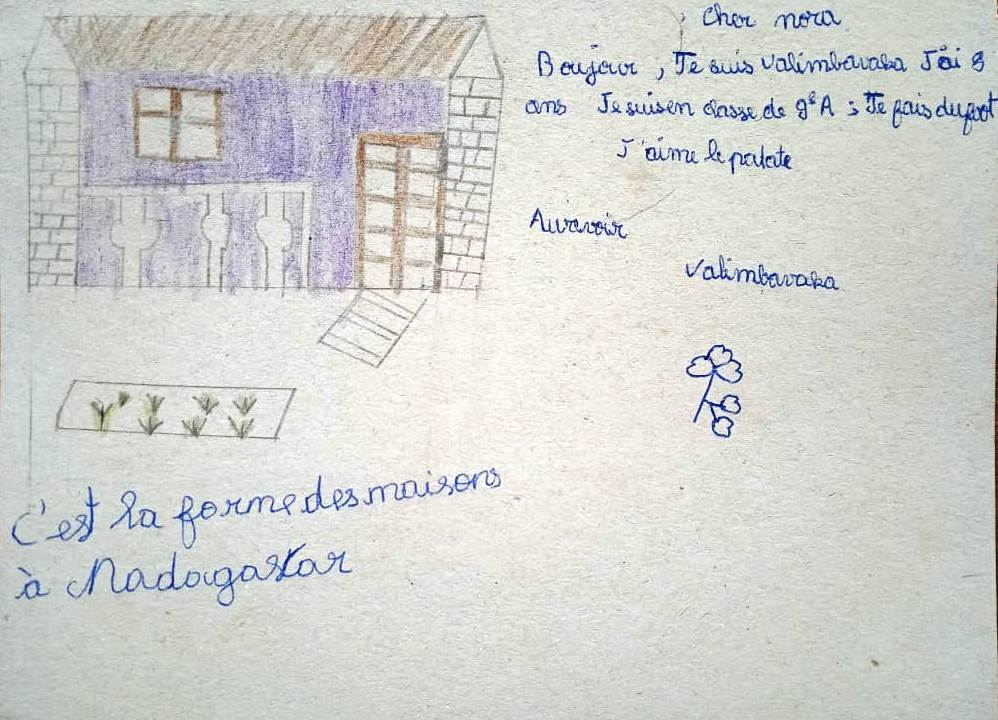 Cher nora
Boujour , Je suis Valimbavaka J'ai 9
ans Je suisen classe de 9è A ; Je fais dufoot
J'aime le patate
Aurevoir
Valimbavaka
C'est la formedesmaisons
à Madagaskar